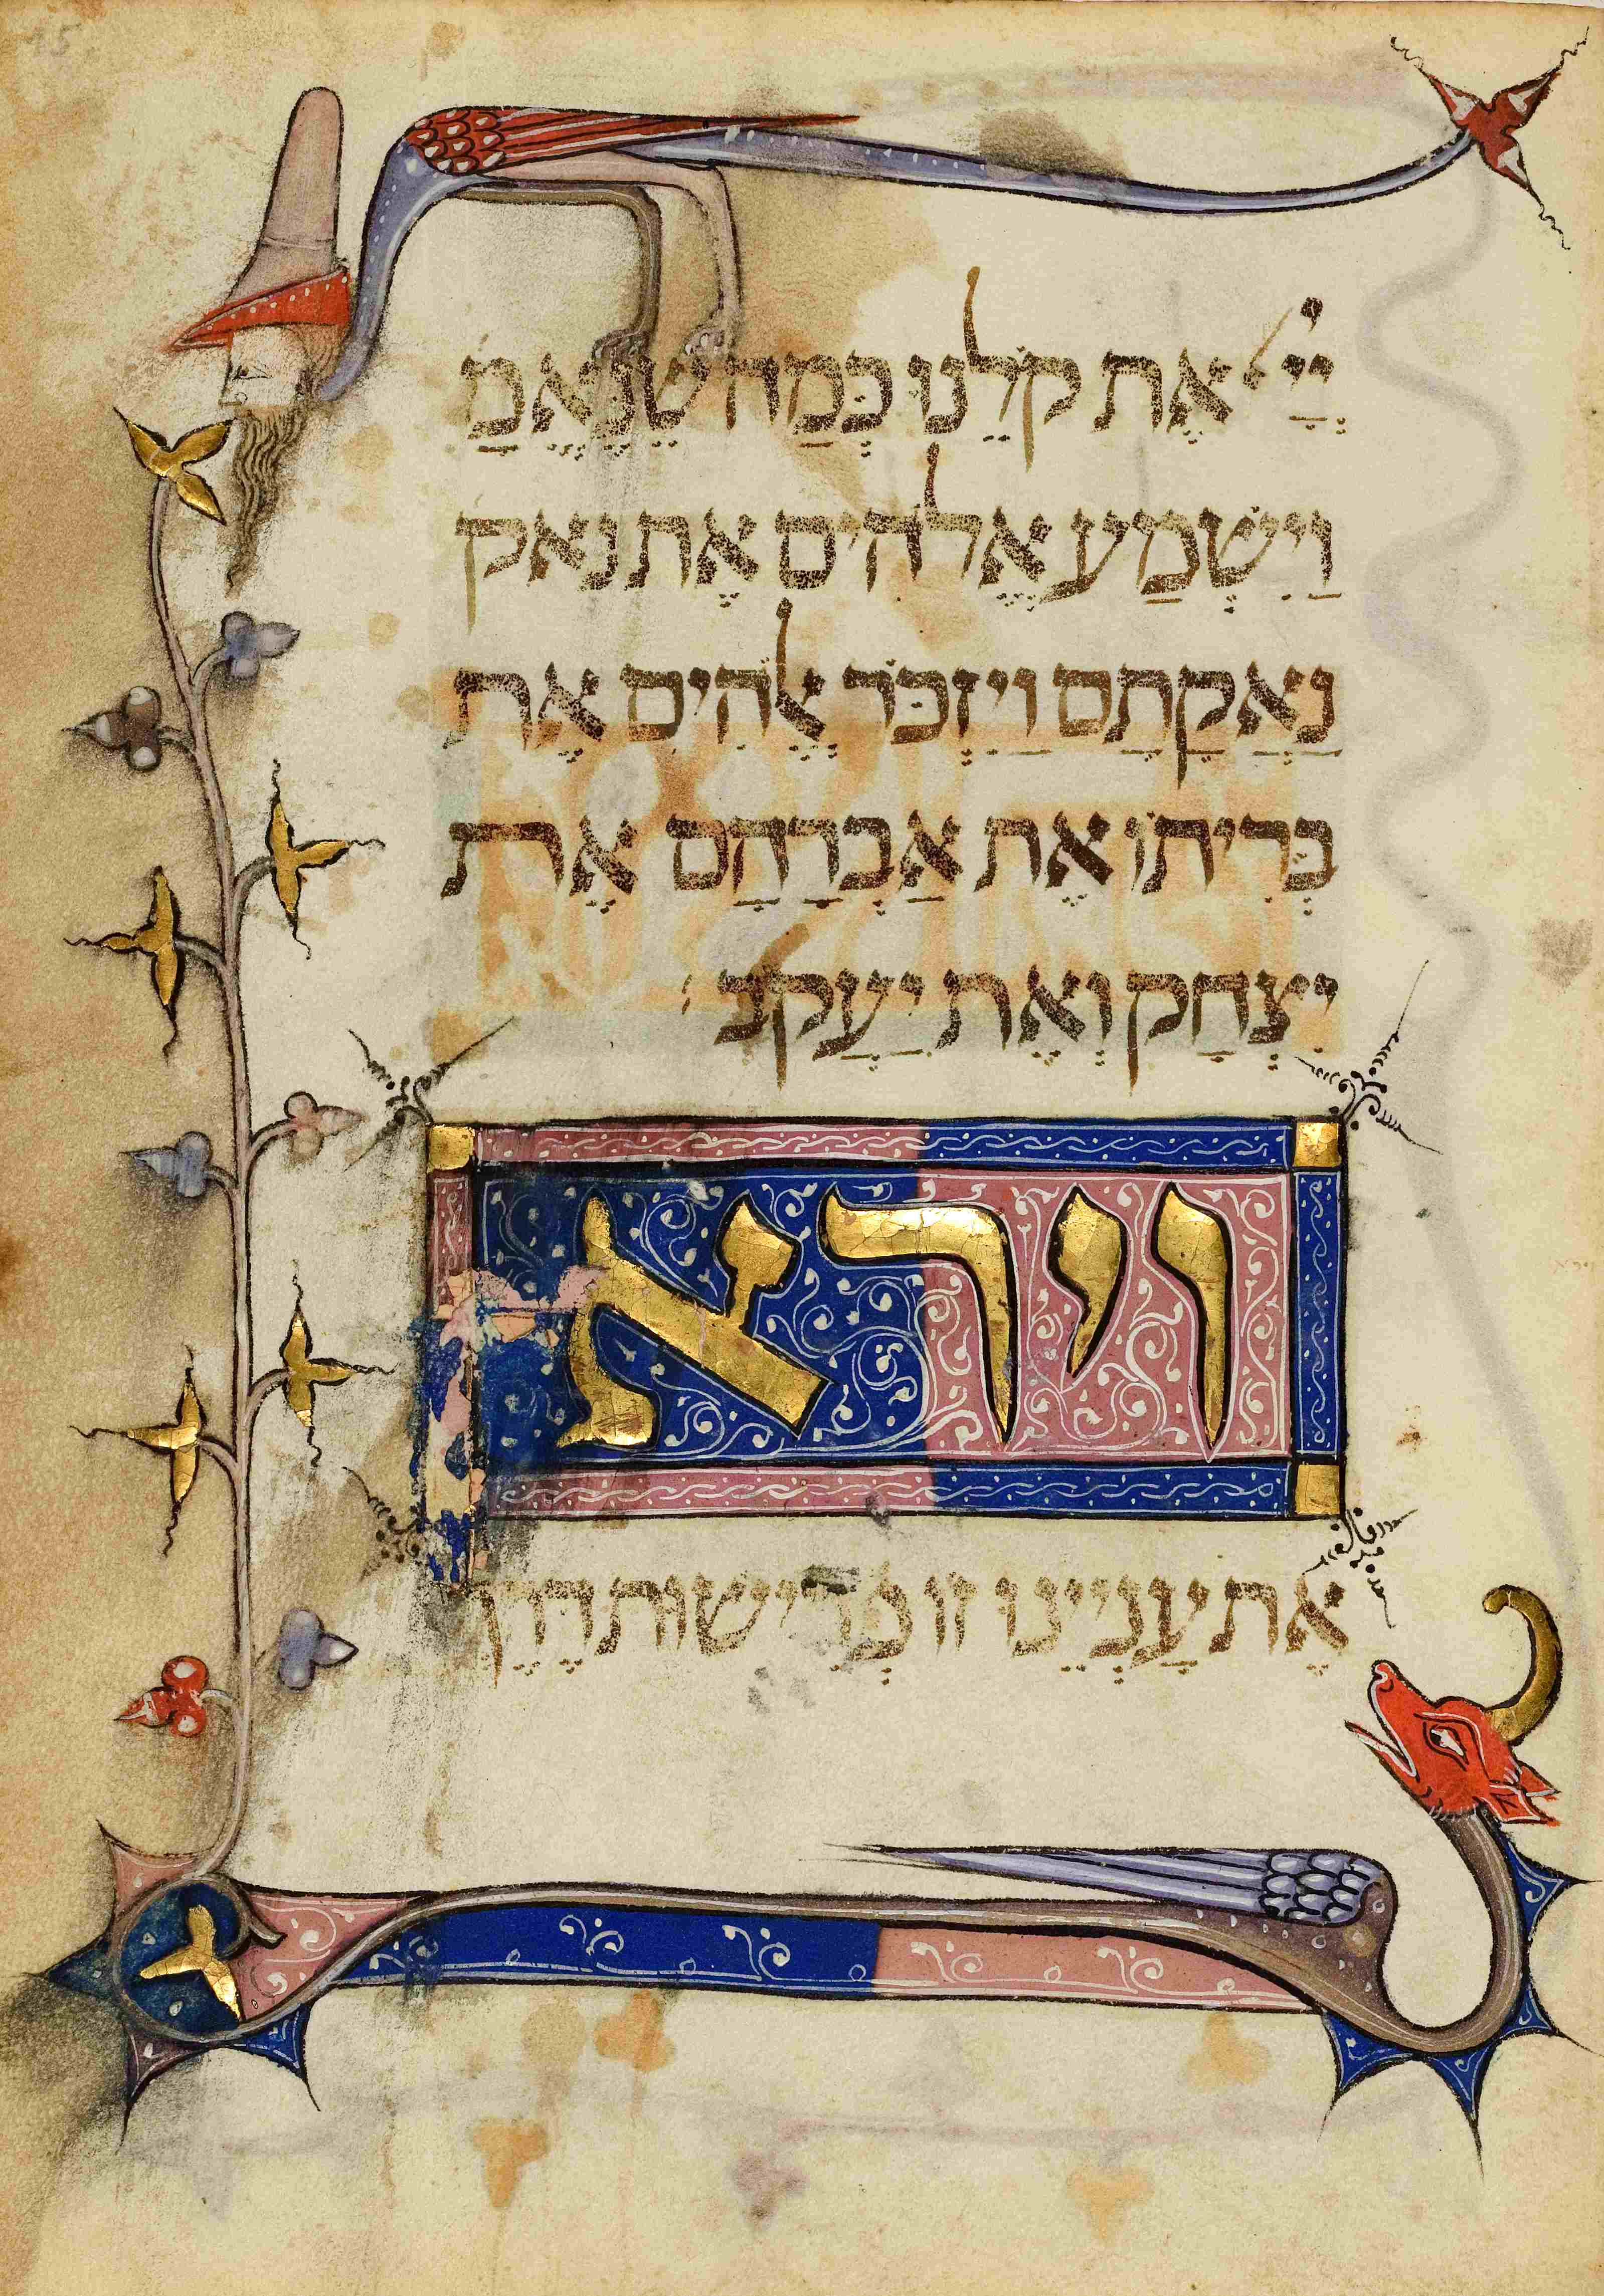 15
יְיָ אֶת קֹלֵנוּ כְּמַה שֶׁנֶּאֱמַ
וַיִּשְׁמַע אֱלֹהִים אֶת נאק
נַאֲקָתָם וַיִּזְכֹּר אֱלֹהִים אֶת
בְּרִיתוֹ אֶת אַבְרָהָם אֶת
יִצְחָק וְאֶת יַעֲקֹב
וירא
אֶת עָנְיֵינוּ זוֹ פְּרִישׁוּת דֶּרֶךְ